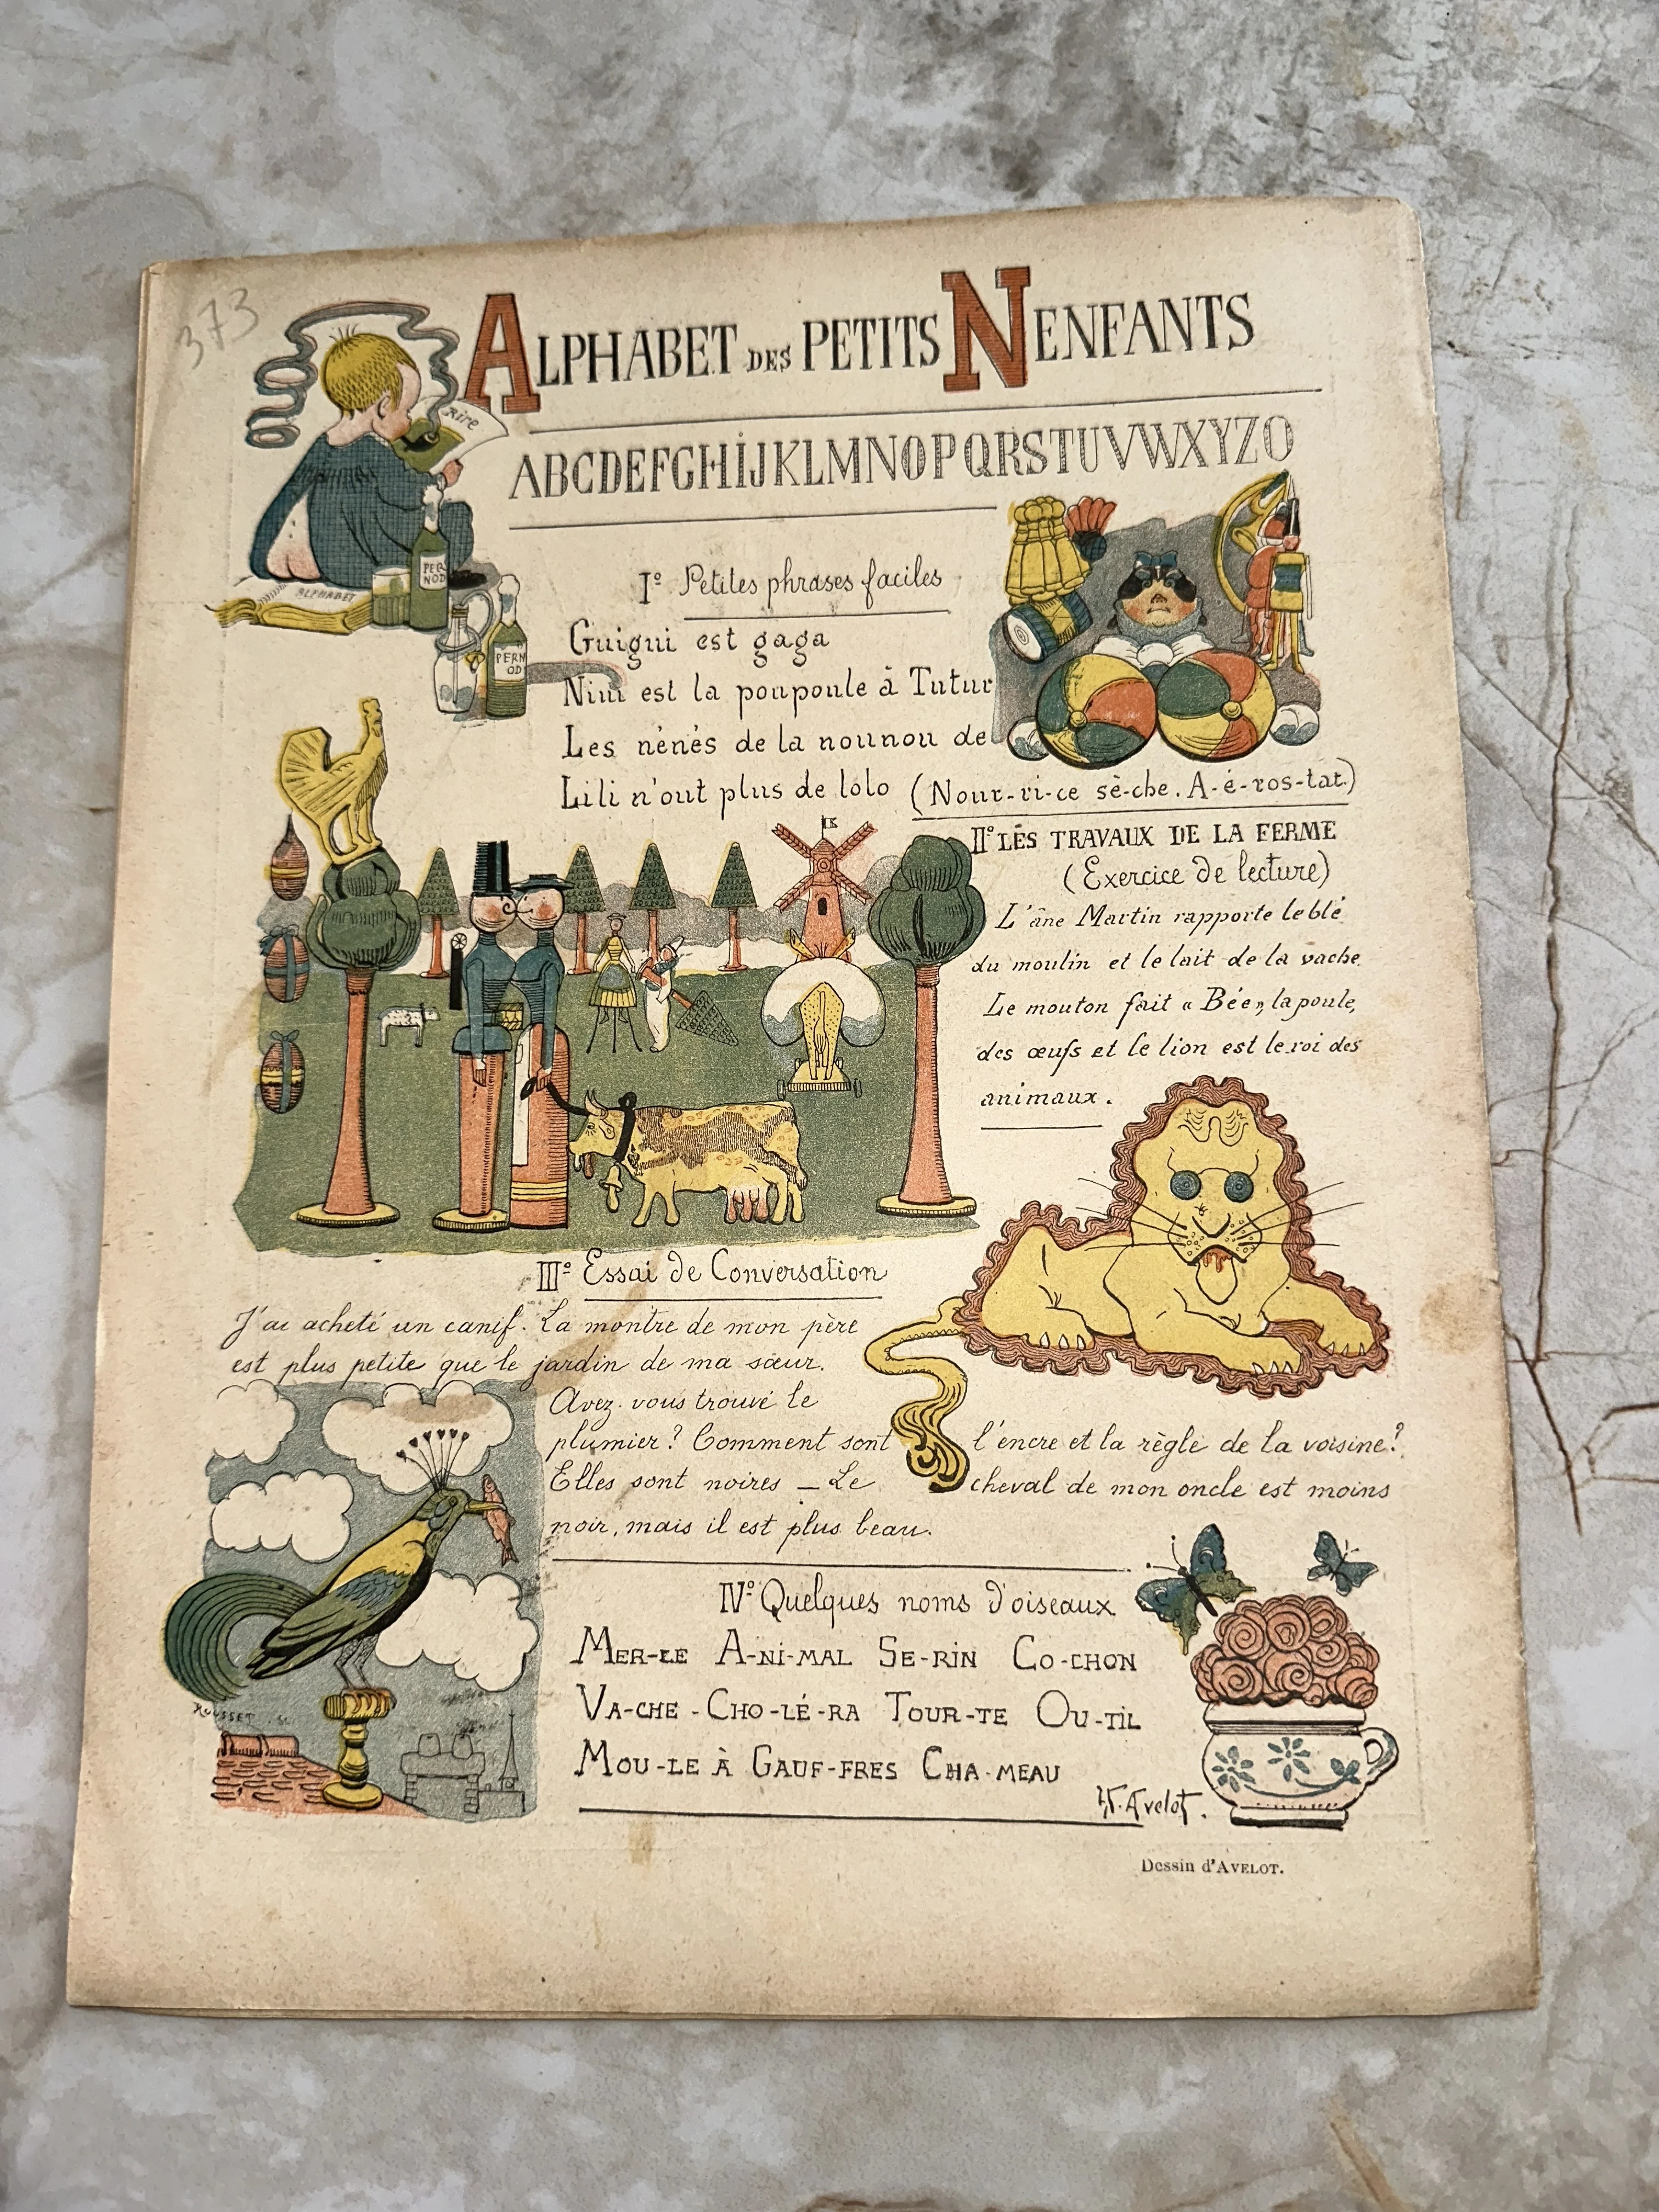 373
ALPHABET DES PETITS NENFANTS
Rire
ABCDEFGHIJKLMNOPQRSTUVWXYZO
ALPHABET
PER
NOD
PERN
OD
I° Petites phrases faciles
Guigui est gaga
Nini est la poupoule à Tutur
Les nénés de la nounou de
Lili n'ont plus de lolo (Nour-ri-ce sè-che. A-é-ros-tat.)
II° LES TRAVAUX DE LA FERME
(Exercice de lecture)
L'âne Martin rapporte le blé
du moulin et le lait de la vache
Le mouton fait « Bée », la poule,
des œufs et le lion est le roi des
animaux.
III° Essai de Conversation
J'ai acheté un canif. La montre de mon père
est plus petite que le jardin de ma sœur.
Avez-vous trouvé le
plumier? Comment sont l'encre et la règle de la voisine?
Elles sont noires — Le cheval de mon oncle est moins
noir, mais il est plus beau.
IV° Quelques noms d'oiseaux
MER-LE A-NI-MAL SE-RIN CO-CHON
VA-CHE - CHO-LÉ-RA TOUR-TE OU-TIL
MOU-LE À GAUF-FRES CHA-MEAU
ROUSSET. SC
H. Avelot.
Dessin d'AVELOT.